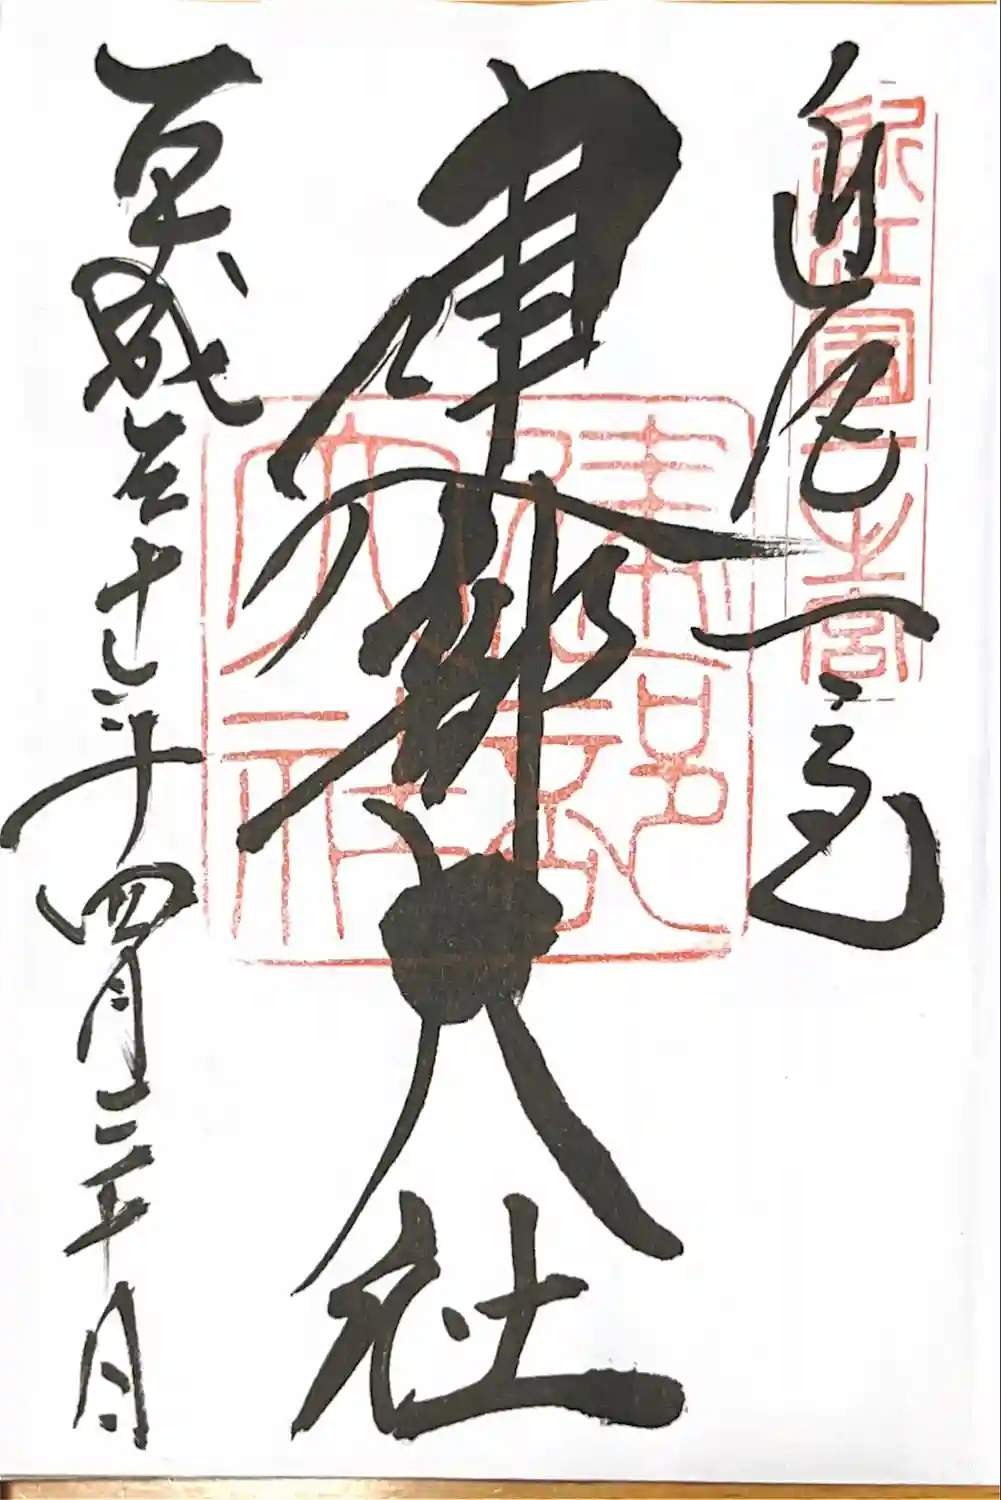 近江国一之宮
近江一之宮
建部大社
建部大社
平成三十一年四月三十日